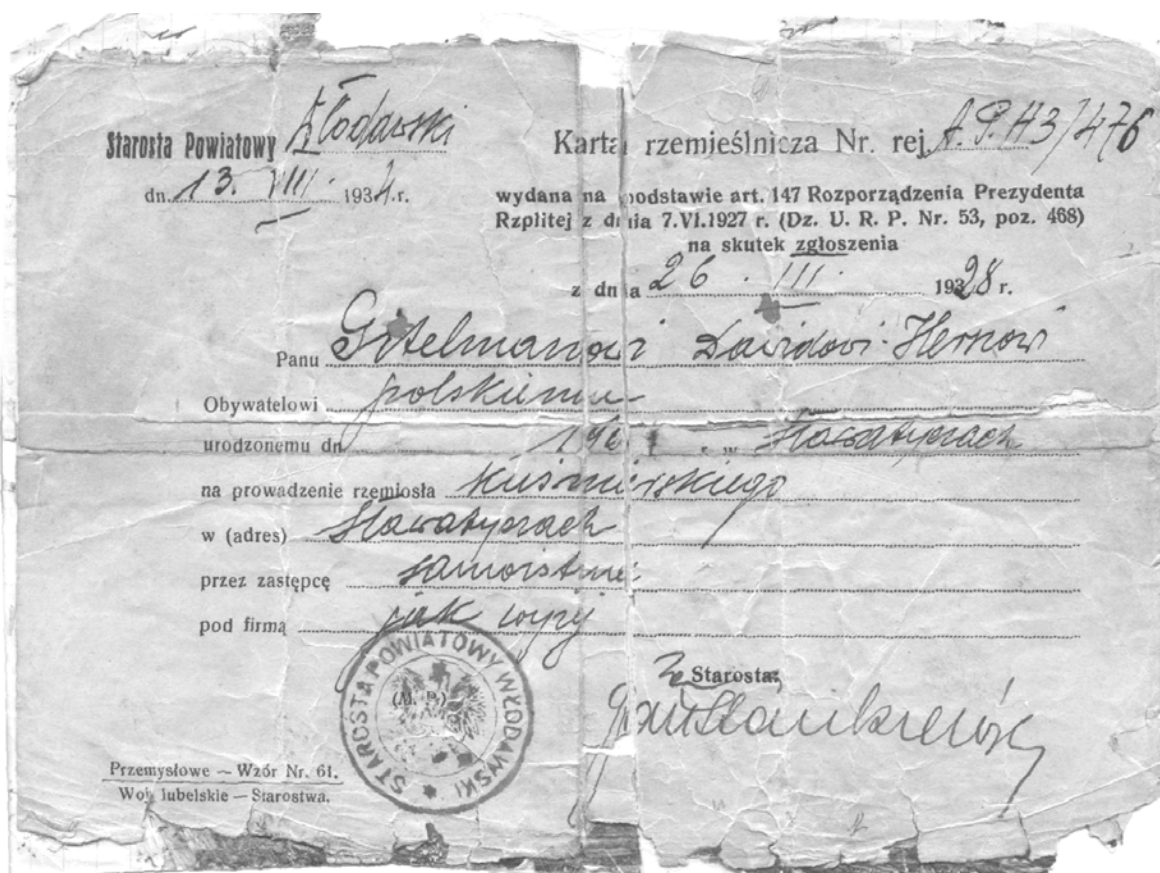 Starosta Powiatowy Włodawski
dn. 13. VIII. 1934. r.
Karta rzemieślnicza Nr. rej. A.P.43/476
wydana na podstawie art. 147 Rozporządzenia Prezydenta
Rzplitej z dnia 7.VI.1927 r. (Dz. U. R. P. Nr. 53, poz. 468)
na skutek zgłoszenia
z dnia 26. III. 1928 r.
Panu Gitelmanowi Dawidowi-
Obywatelowi polskiemu
urodzonemu dn. r. w Sławatyczach
na prowadzenie rzemiosła kuśnierskiego
w (adres) Sławatyczach
przez zastępcę samoistnie
pod firmą jak wyżej
STAROSTA POWIATOWY WŁODAWSKI
(M. P.)
Ze Starosta:
Przemysłowe — Wzór Nr. 61.
Woj. lubelskie — Starostwa.